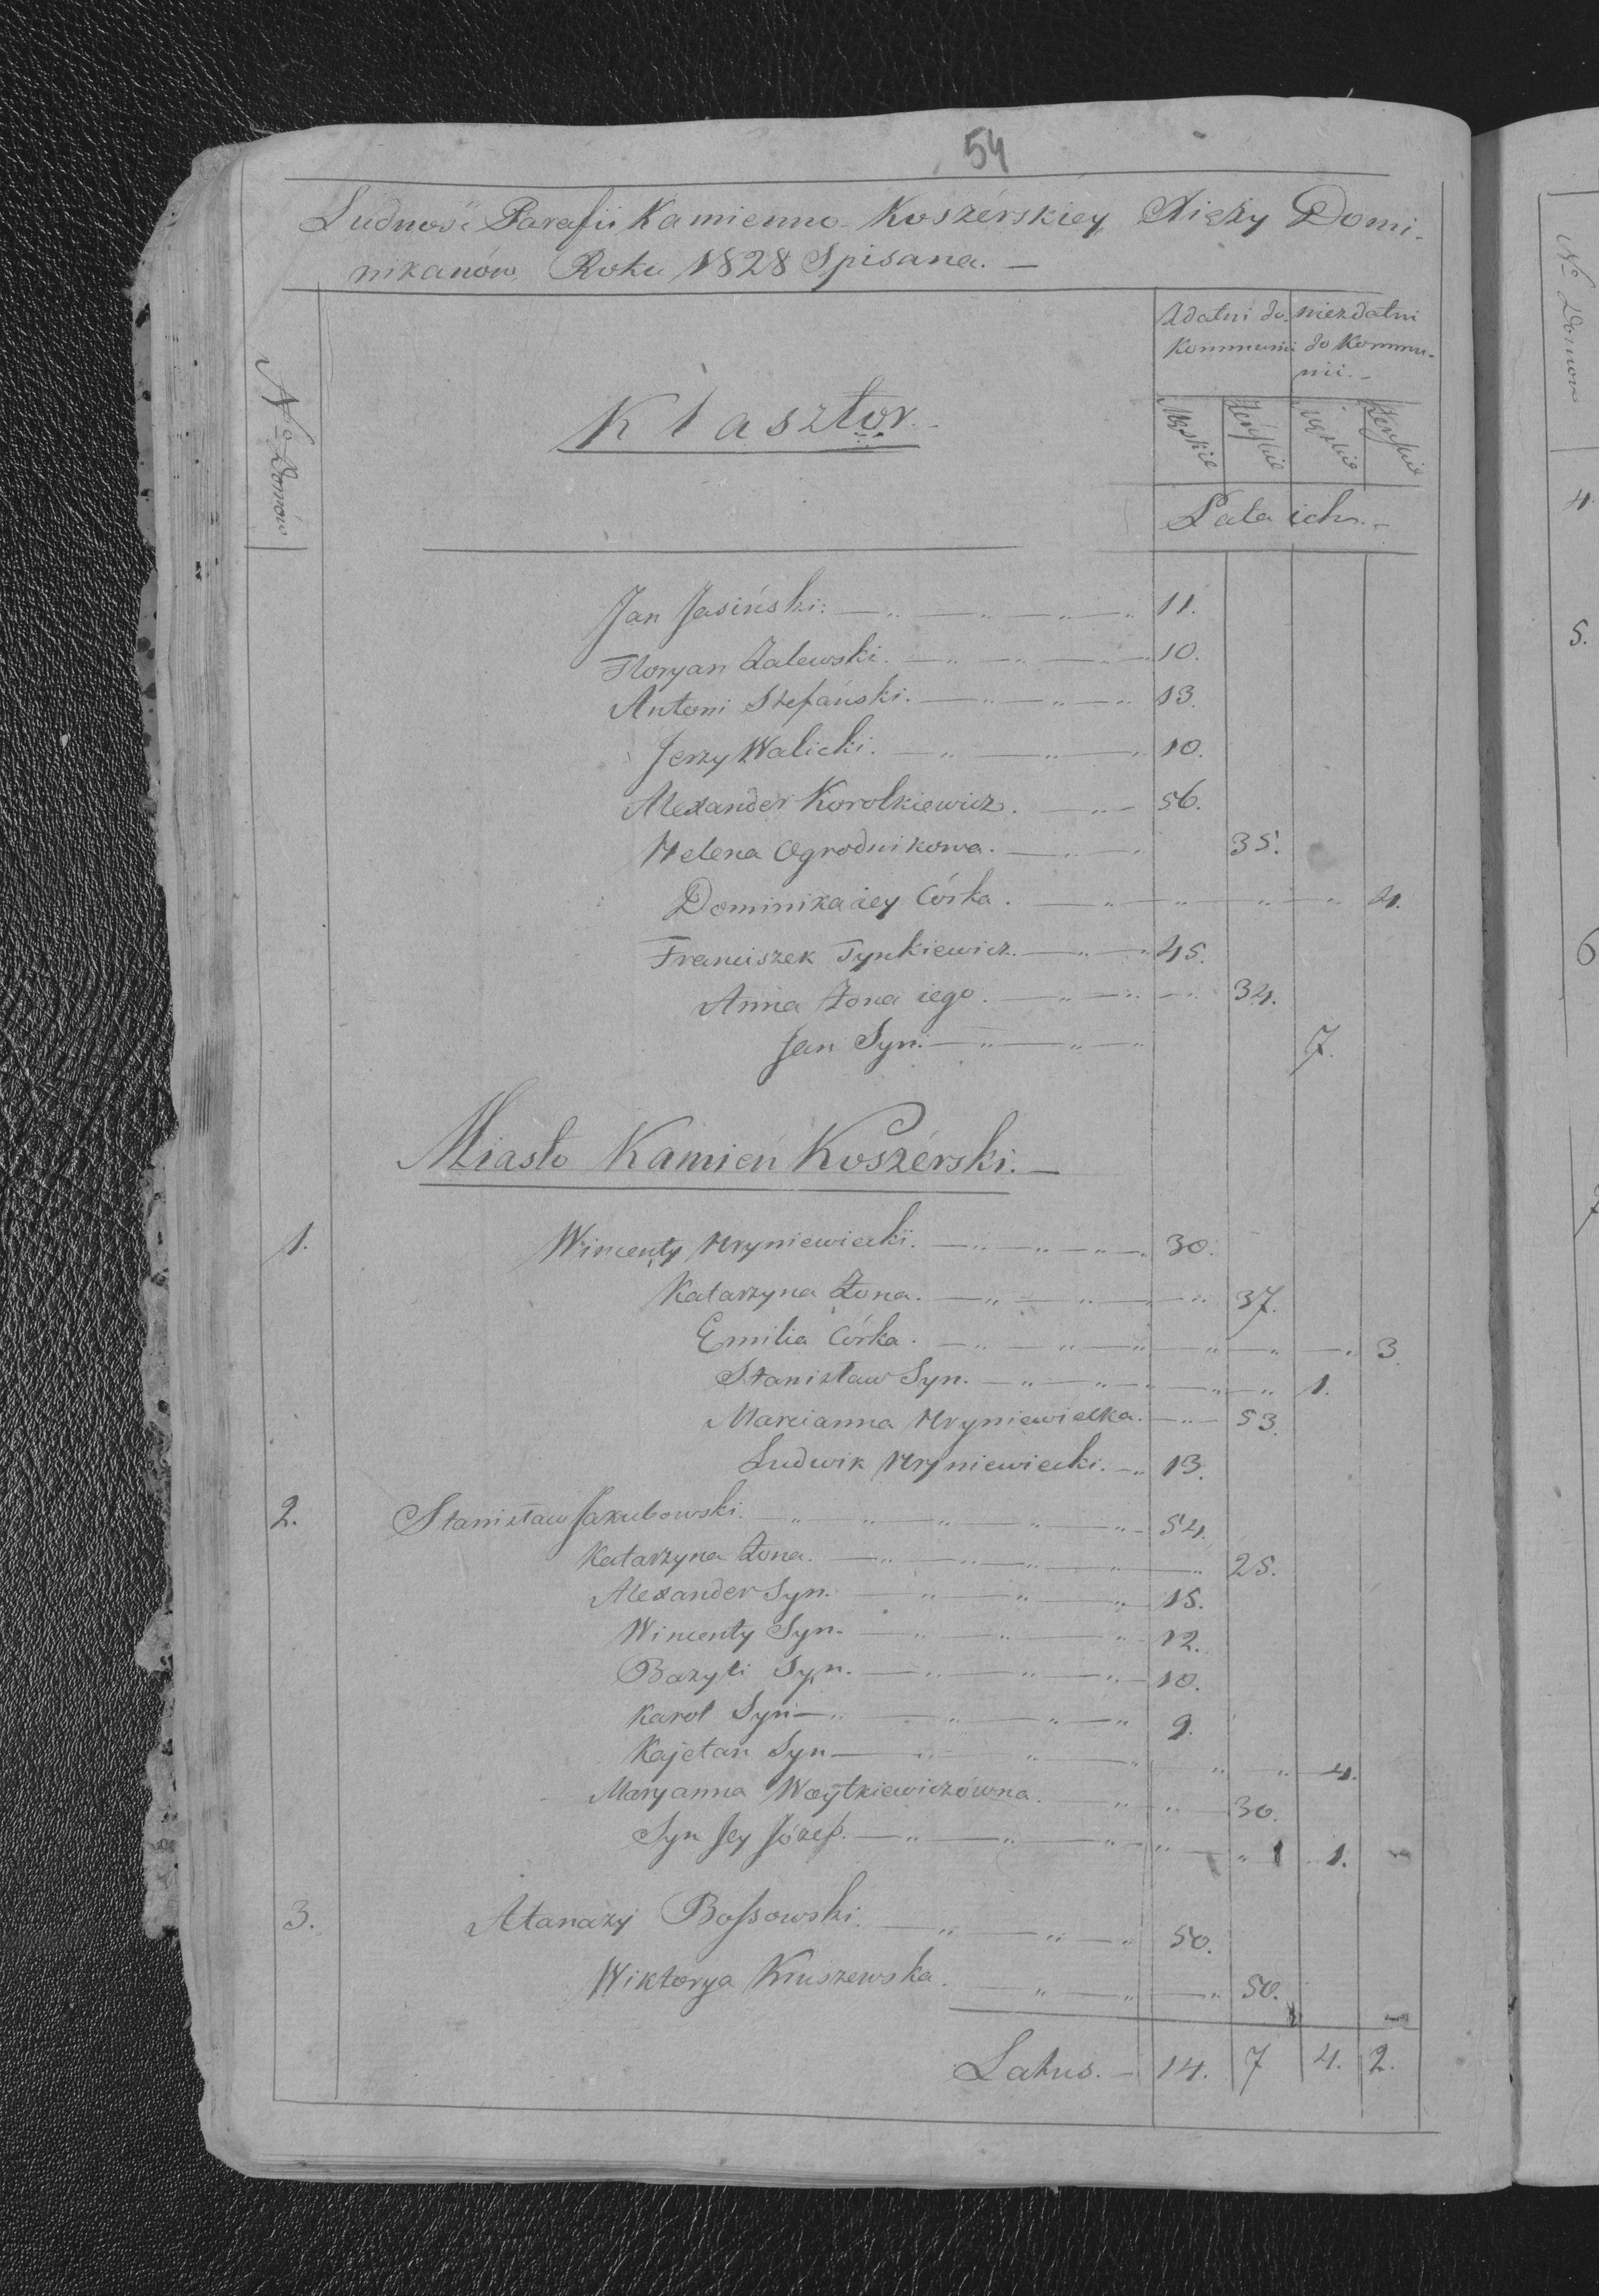 54
Ludność Parafii Kamienno-Koszérskiey Xięży Domi-
nikanów Roku 1828 Spisana. —
No Domów
Zdatni do Kommunii
niezdatni do Kommu-
nii. -
Klasztor.
Męskie Żeńskie Męskie Żeńskie
Lata ich. -
Jan Jasiński. 11.
Floryan Zalewski. 10.
Antoni Stefański. 13.
Jerzy Walicki. 10.
Alexander Korolkiewicz. 56.
Helena Ogrodnikowa. 35.
Dominika iey Córka. 4.
Franciszek Tynkiewicz. 45.
Anna Żona iego. 34.
Jan Syn. 7.
Miasto Kamień Koszérski. —
1. Wincenty Hryniewiecki. 30.
Katarzyna Żona. 37.
Emilia Córka. 3.
Stanisław Syn. 1.
Marcianna Hryniewiecka. 53.
Ludwik Hryniewiecki. 13.
2. Stanisław Jakubowski. 54.
Katarzyna Żona. 25.
Alexander Syn. 15.
Wincenty Syn. 12.
Bazyli Syn. 10.
Karol Syn 9.
Kajetan Syn 4.
Maryanna Woytkiewiczówna. 30.
Syn Jey Józef. 1.
3. Atanazy Bossowski. 50.
Wiktorya Kruszewska. 50.
Latus. - 14. 7 4. 2.
No Domow
4.
5.
6
7